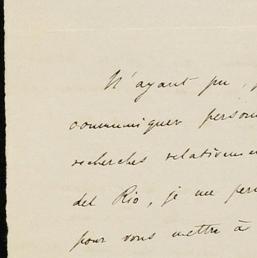 N'ayant pu,
communiquer person
recherches relativeme
del Rio, je me per
pour vous mettre à